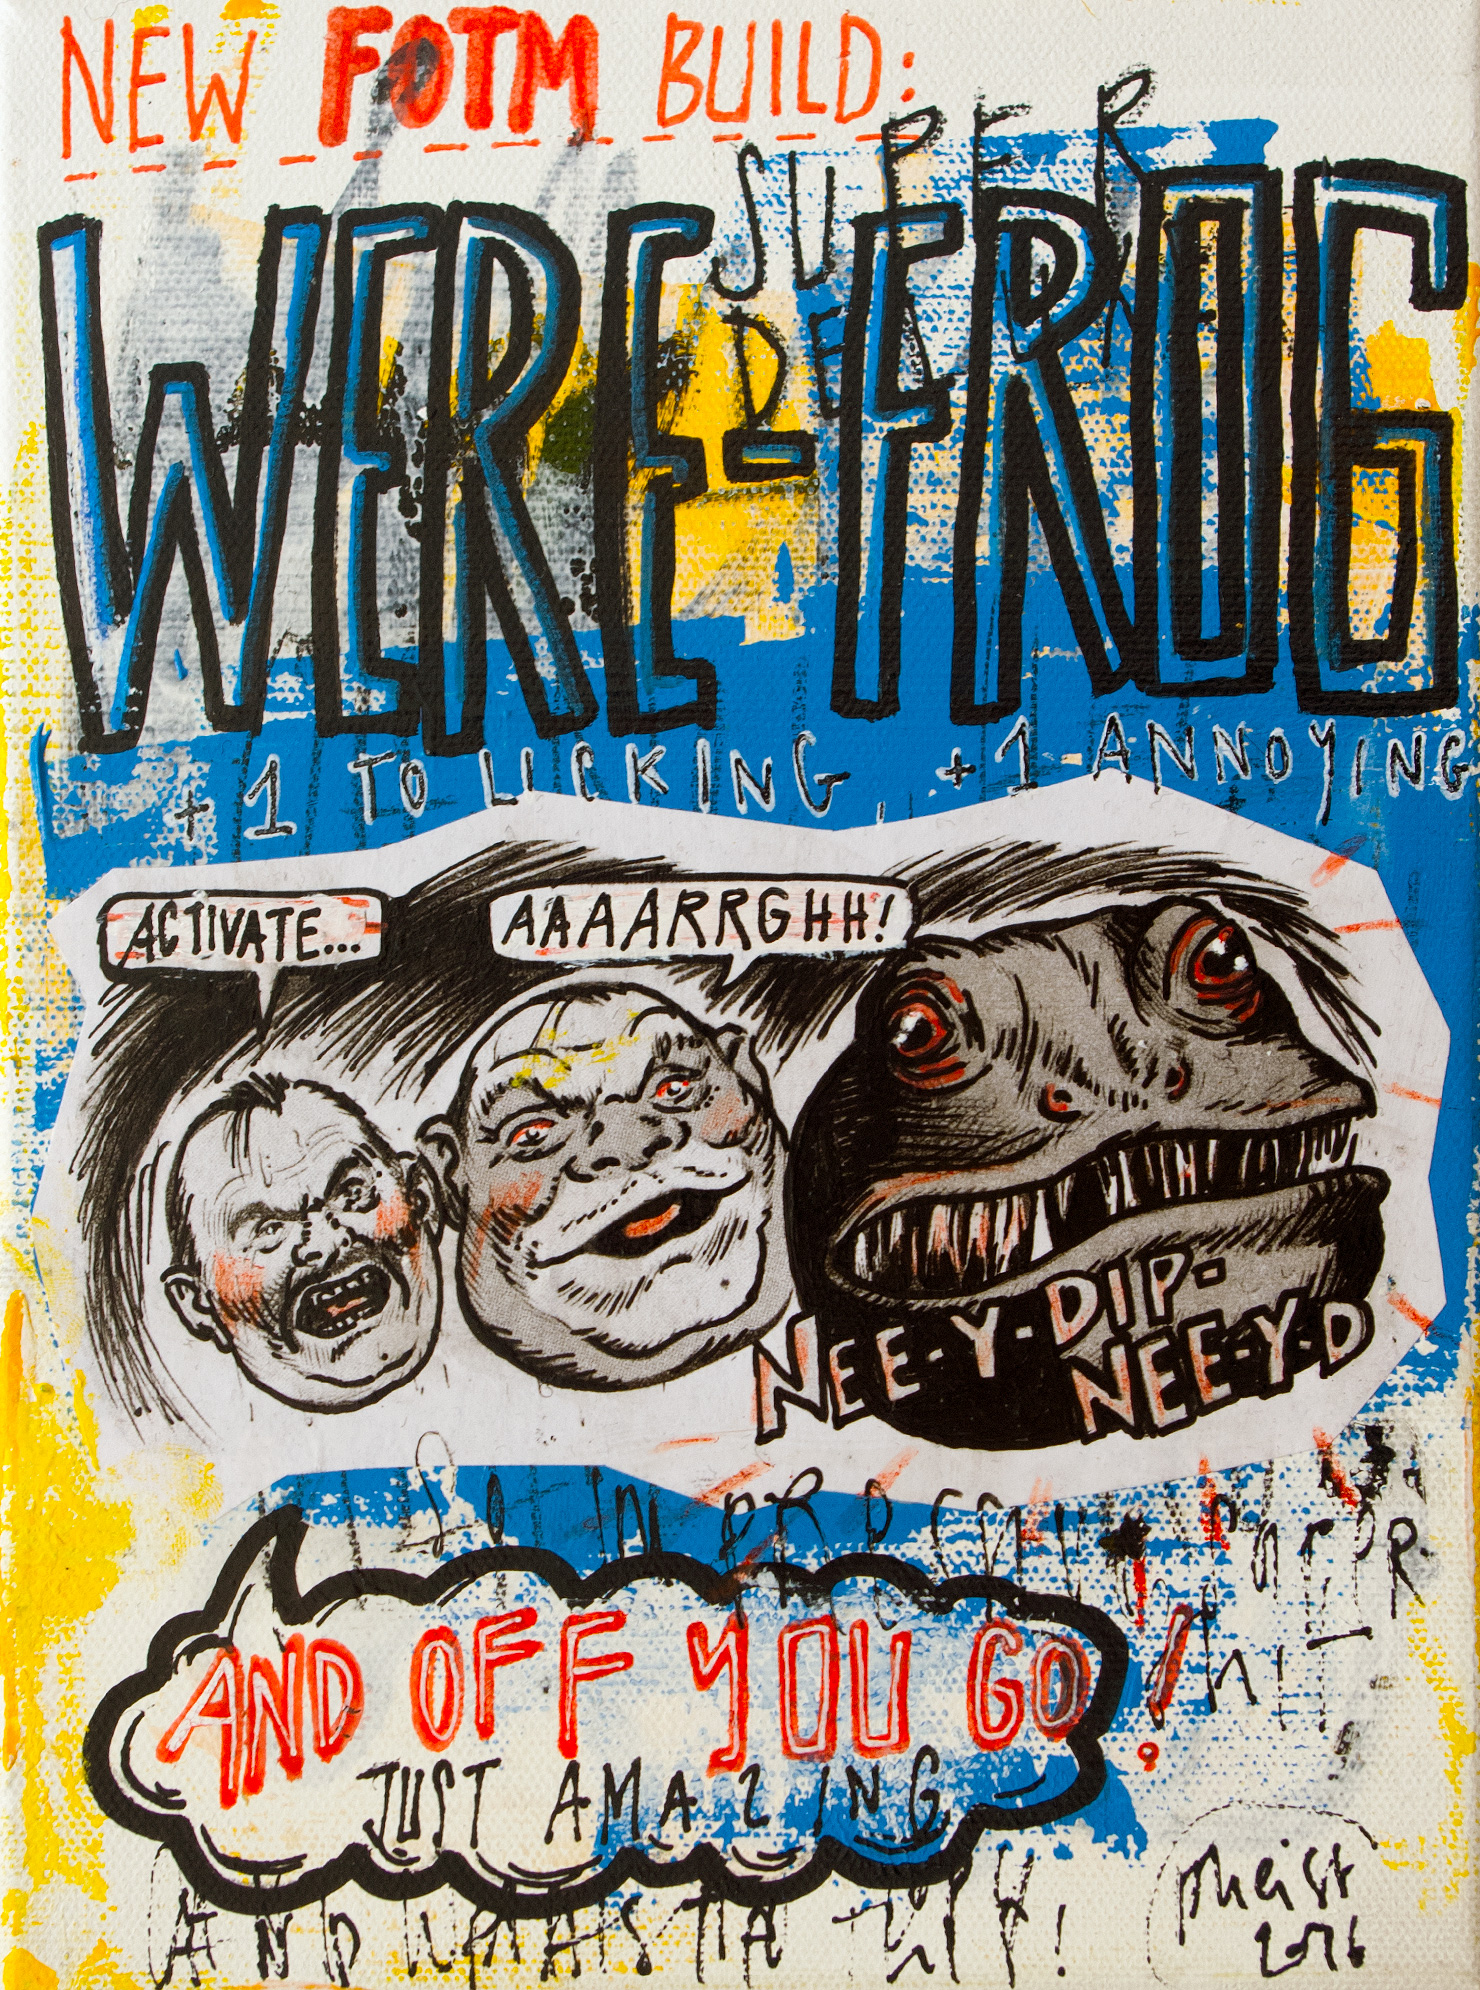 NEW FOTM BUILD:
SUPER
WERE-FROG
+1 TO LICKING, +1 ANNOYING
ACTIVATE...
AAAARRGHH!
NEE-Y-DIP-
NEE-Y-D
AND OFF YOU GO!
JUST AMAZING
AND
2016